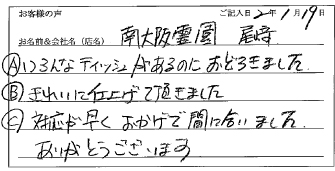 お客様の声 ご記入日 2年1月19日
お名前&会社名(店名) 南大阪霊園 尾崎
Ⓐいろんなティッシュがあるのにおどろきました。
Ⓑきれいに仕上げて頂きました
Ⓒ対応が早くおかげで間に合いました。
ありがとうございます